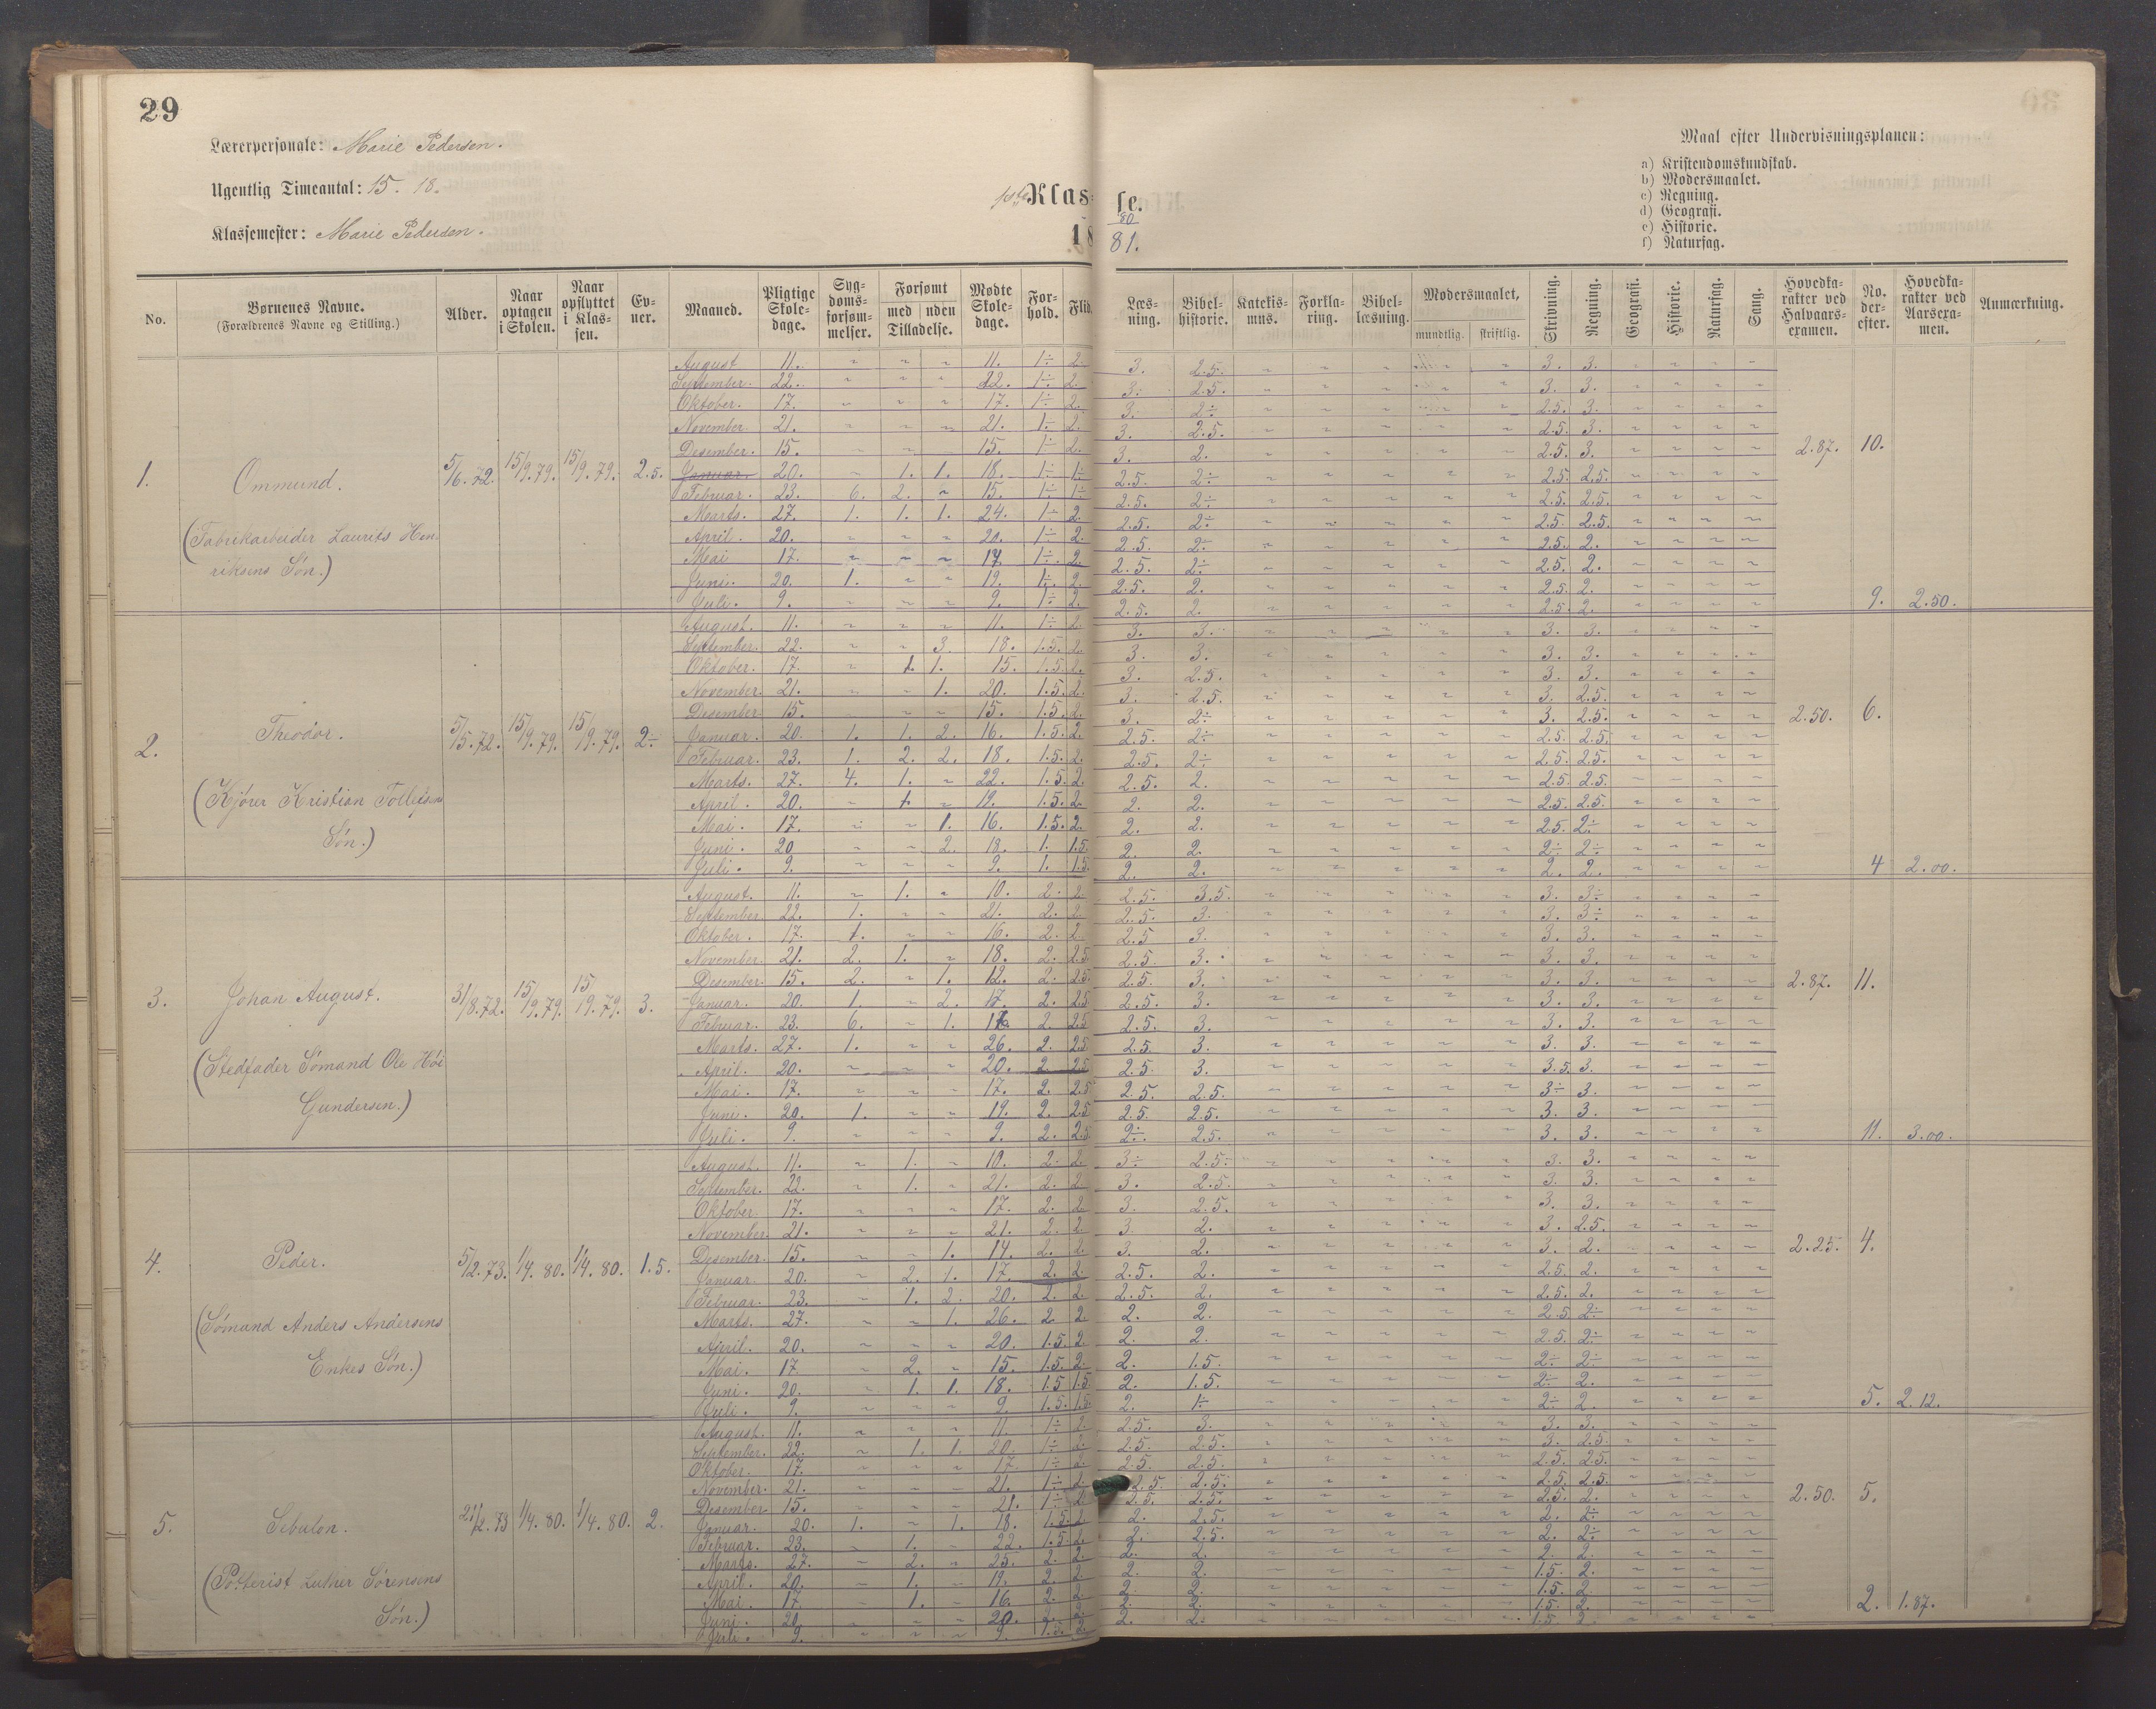 29
Lærerpersonale: Marie Pedersen.
Ugentlig Timeantal: 15. 18.
Klassemester: Marie Pedersen.
1ste Klasse.
18 80/81.
Maal efter Undervisningsplanen:
a) Kristendomskundskab.
b) Modersmaalet.
c) Regning.
d) Geografi.
e) Historie.
f) Naturfag.
No. Børnenes Navne. (Forældrenes Navne og Stilling.) Alder. Naar optagen i Skolen. Naar opflyttet i Klassen. Evner. Maaned. Pligtige Skoledage. Sygdomsforsømmelser. Forsømt med uden Tilladelse. Mødte Skoledage. Forhold. Flid. Læsning. Bibelhistorie. Katekismus. Forklaring. Bibellæsning. Modersmaalet, mundtlig. skriftlig. Skrivning. Regning. Geografi. Historie. Naturfag. Sang. Hovedkarakter ved Halvaarsexamen. No. derefter. Hovedkarakter ved Aarsexamen. Anmærkning.
1. Ommund. 5/6.72. 15/9.79. 15/9.79. 2.5.
(Fabrikarbeider Laurits Henriksens Søn.)
August 11. ~ ~ ~ 11. 1÷ 2. 3. 2.5. 3. 3.
September. 22. ~ ~ ~ 22. 1÷ 2. 3. 2.5. 3. 3.
Oktober. 17. ~ ~ ~ 17. 1÷ 2. 3. 2÷ 2.5. 3.
November. 21. ~ ~ ~ 21. 1÷ 2. 3. 2.5. 2.5. 3.
Desember. 15. ~ ~ ~ 15. 1÷ 2. 3. 2. 2.5. 3. 2.87. 10.
Januar. 20. ~ 1. 1. 18. 1÷ 1÷ 2.5. 2÷ 2.5. 2.5.
Februar. 23. 6. 2. ~ 15. 1÷ 1÷ 2.5. 2÷ 2.5. 2.5.
Marts. 27. 1. 1. 1. 24. 1÷ 2. 2.5. 2÷ 2.5. 2.5.
April. 20. ~ ~ ~ 20. 1÷ 2. 2.5. 2÷ 2.5. 2.
Mai 17. ~ ~ ~ 17 1÷ 2. 2.5. 2÷ 2.5. 2.
Juni. 20. 1. ~ ~ 19. 1÷ 2. 2.5. 2. 2.5. 2.
Juli. 9. ~ ~ ~ 9. 1÷ 2. 2.5. 2. 2.5. 2. 9. 2.50.
2. Theodor. 5/5.72. 15/9.79. 15/9.79. 2÷
(Kjører Kristian Tollefsens Søn.)
August. 11. ~ ~ ~ 11. 1÷ 2. 3. 3. 3. 3.
September. 22. ~ ~ 3. 18. 1.5. 2. 3. 3. 3. 3.
Oktober. 17. ~ 1. 1. 15. 1.5. 2. 3. 2.5. 3. 3.
November. 21. ~ ~ 1. 20. 1.5. 2. 3. 2.5. 3. 2.5.
Desember 15. ~ ~ ~ 15. 1.5. 2. 3. 2÷ 3. 2.5. 2.50. 6.
Januar. 20. 1. 1. 2. 16. 1.5. 2. 2.5. 2÷ 2.5. 2.5.
Februar. 23. 1. 2. 2. 18. 1.5. 2. 2.5. 2÷ 2.5. 2.5.
Marts. 27. 4. 1. ~ 22. 1.5. 2. 2.5. 2. 2.5. 2.5.
April. 20. ~ 1. ~ 19. 1.5. 2. 2. 2. 2.5. 2.5.
Mai. 17. ~ ~ 1. 16. 1.5. 2. 2. 2. 2.5. 2÷
Juni. 20 ~ ~ 2. 18. 1. 1.5. 2. 2. 2÷ 2÷
Juli. 9. ~ ~ ~ 9. 1. 1.5. 2. 2. 2. 2. 4 2.00.
3. Johan August. 31/8.72. 15/9.79. 15/9.79. 3.
(Stedfader Sømand Ole Høie Gundersen.)
August. 11. ~ 1. ~ 10. 2. 2. 2.5. 3.5. 3. 3÷
September. 22. 1. ~ ~ 21. 2. 2. 2.5. 3. 3. 3÷
Oktober. 17. 1. ~ ~ 16. 2. 2. 2.5 3. 3. 3.
November. 21. 2. 1. ~ 18. 2. 2.5 2.5. 3. 3. 3.
Desember. 15. 2. ~ 1. 12. 2. 2.5 2.5. 3. 3. 3. 2.87. 11.
Januar. 20. 1. ~ 2. 17. 2. 2.5 2.5. 3. 3. 3.
Februar. 23. 6. ~ 1. 16. 2. 2.5 2.5. 3. 3. 3.
Marts. 27. 1. ~ ~ 26. 2. 2.5 2.5. 3. 3. 3.
April. 20. ~ ~ ~ 20. 2. 2.5 2.5. 3. 3.5. 3.
Mai. 17. ~ ~ ~ 17. 2. 2.5 2.5. 2.5. 3÷ 3.
Juni. 20. 1. ~ ~ 19. 2. 2.5 2.5. 2.5. 3. 3.
Juli. 9. ~ ~ ~ 9. 2. 2.5. 2÷ 2.5. 3. 3. 11. 3.00.
4. Peder. 5/2.73. 1/4.80. 1/4.80. 1.5.
(Sømand Anders Andersens Enkes Søn.)
August. 11. ~ 1. ~ 10. 2. 2. 3÷ 2.5. 3. 3.
September. 22. ~ 1. ~ 21. 2. 2. 3. 2.5. 3. 3.
Oktober. 17. ~ ~ ~ 17. 2. 2. 3. 2.5. 3. 3.
November. 21. ~ ~ ~ 21. 2. 2. 3. 2. 3. 2.5.
Desember. 15. ~ ~ 1. 14. 2. 2. 3. 2. 3. 2. 2.25. 4.
Januar. 20. ~ 2. 1. 17. 2. 2. 2.5. 2. 2.5. 2.
Februar. 23. ~ 1. 2. 20. 2. 2. 2.5. 2. 2.5. 2.
Marts. 27. ~ ~ 1. 26. 2. 2. 2. 2. 2.5. 2÷
April. 20. ~ ~ ~ 20. 1.5. 2. 2. 2. 2.5. 2÷
Mai. 17. ~ 2. ~ 15. 1.5. 2. 2. 1.5. 2÷ 2÷
Juni. 20. ~ 1. 1. 18. 1.5 1.5 2. 1.5. 2÷ 2.
Juli. 9. ~ ~ ~ 9. 1.5. 1.5. 2. 1÷ 2÷ 2. 5. 2.12.
5. Sebulon. 21/2.73 1/4.80. 1/4.80. 2.
(Luther Sørensens Søn.)
August. 11. ~ ~ ~ 11. 1÷ 2. 2.5. 3. 3. 3.
September. 22. ~ 1. 1. 20. 1÷ 2. 2.5. 2.5. 3. 2.5.
Oktober. 17. ~ ~ ~ 17. 1÷ 2. 2.5. 2.5. 2.5. 2.5.
November. 21. ~ ~ ~ 21. 1÷ 2. 2.5. 2.5. 2.5. 2.5.
Desember. 15. ~ ~ ~ 21. 1÷ 2. 2.5. 2.5. 2.5. 2. 2.50. 5.
Januar. 20. 1. ~ 1. 18. 1.5. 2. 2. 2.5. 2. 2÷
Februar. 23. ~ 1. ~ 22. 1.5. 2. 2. 2.5. 2. 2÷
Marts. 27. ~ 2. ~ 25. 2. 2. 2. 2. 2. 2.
April. 20. ~ 1. ~ 19. 2. 2. 2. 2. 1.5. 2.
Mai. 17. ~ 1. ~ 16. 2. 2. 2. 2. 1.5. 2.
Juni. 20. ~ ~ ~ 20. 2. 2. 2. 2. 1.5. 2. 2. 1.87.
Juli. 9. ~ ~ ~ 9. 1.5. 2. 2. 2. 1.5 2.